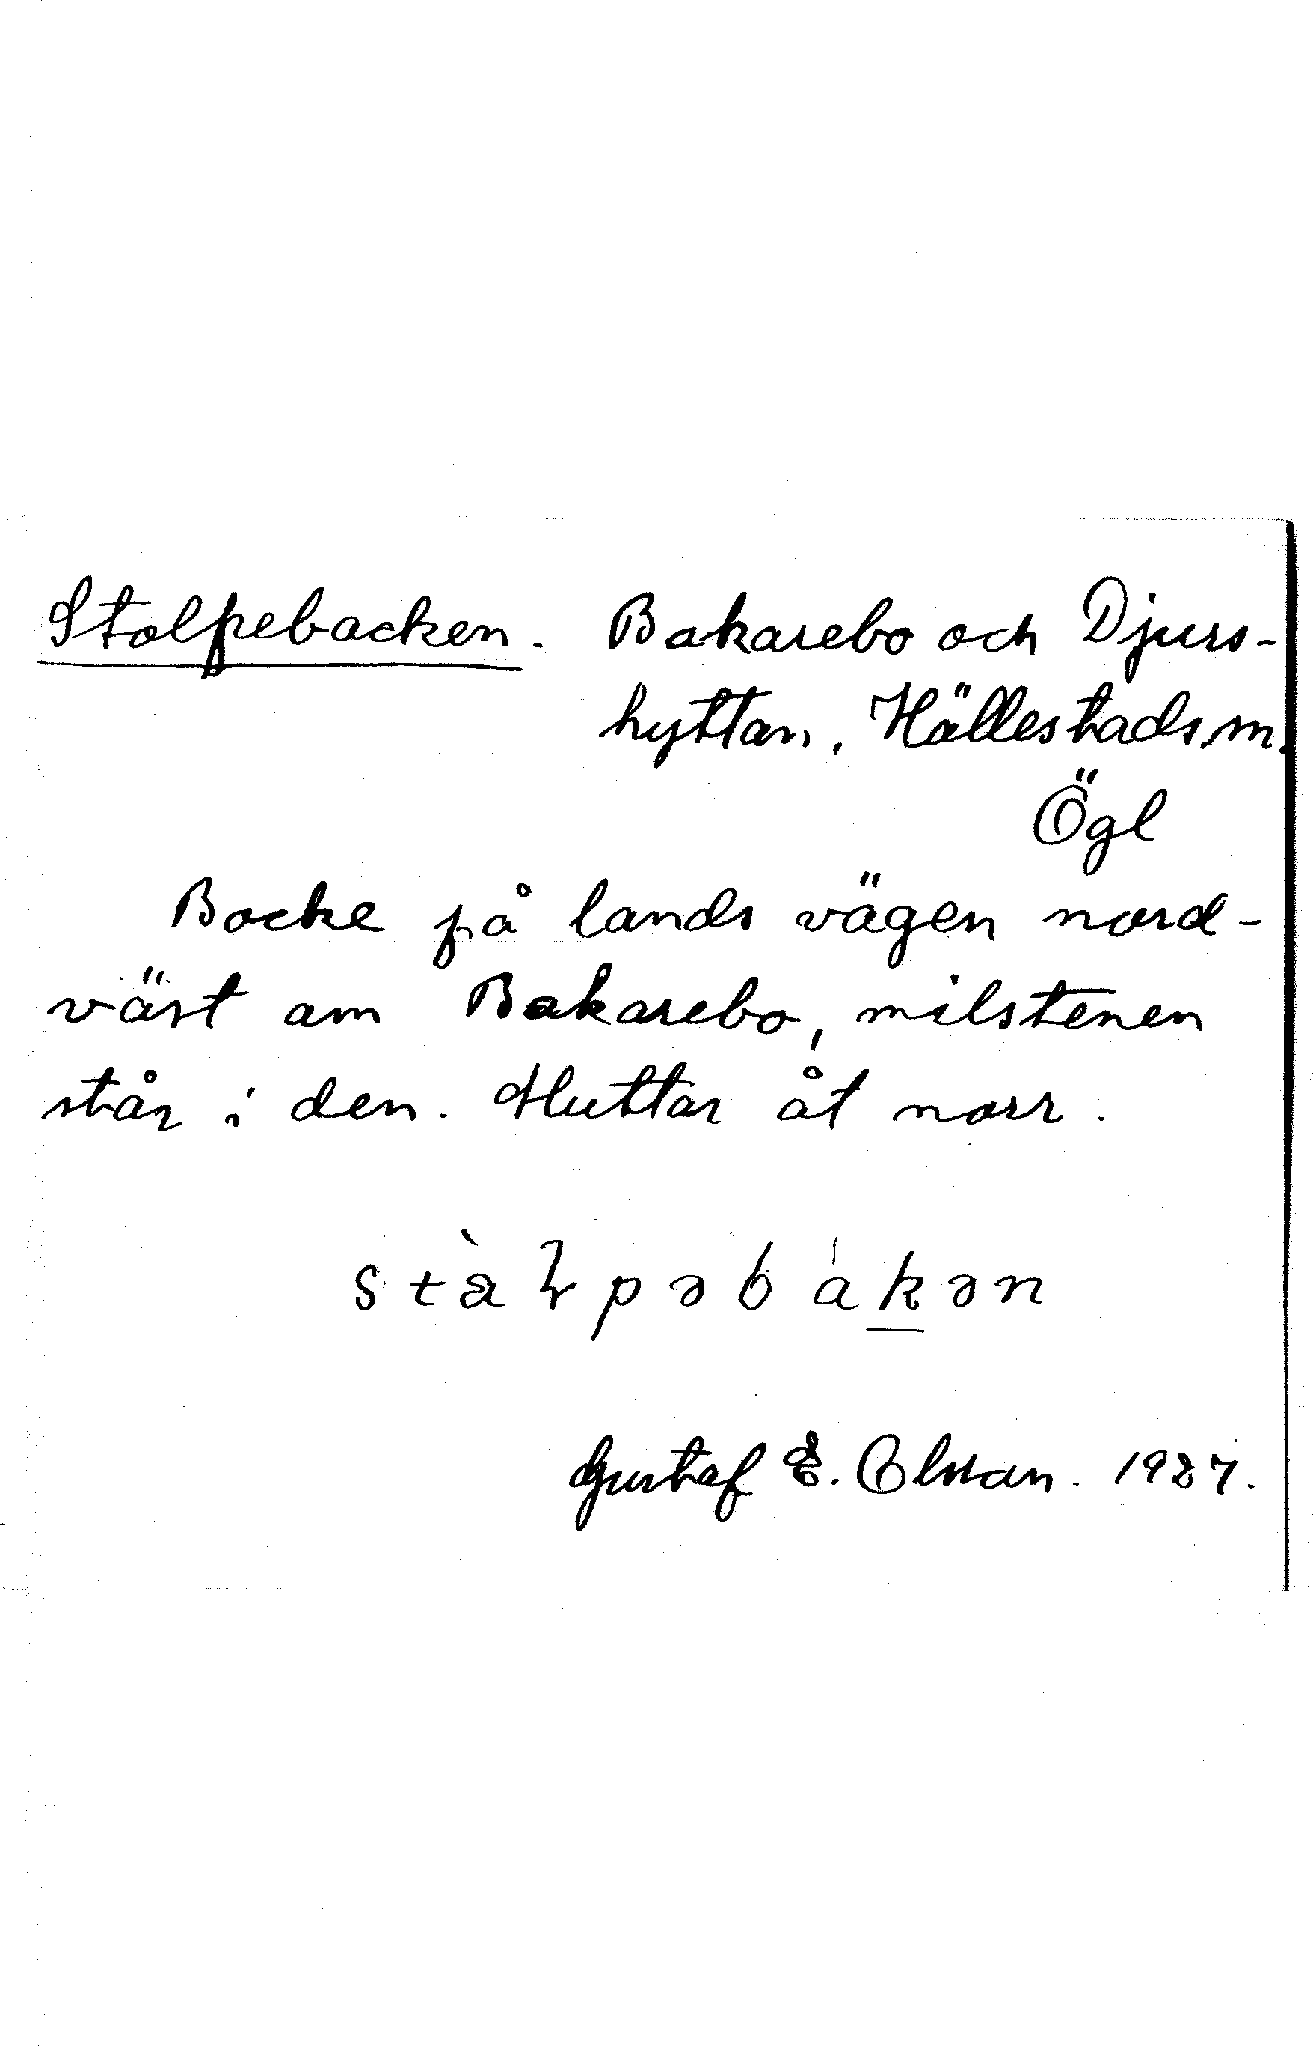 Stolpebacken. Bakarebo och Djurs-
hyttan, Hällestads sn.
Ögl
Backe på landsvägen nord-
väst om Bakarebo, milstenen
står i den. Sluttar åt norr.
stàɽpəbákən
Gustaf E. Olsson. 1927.